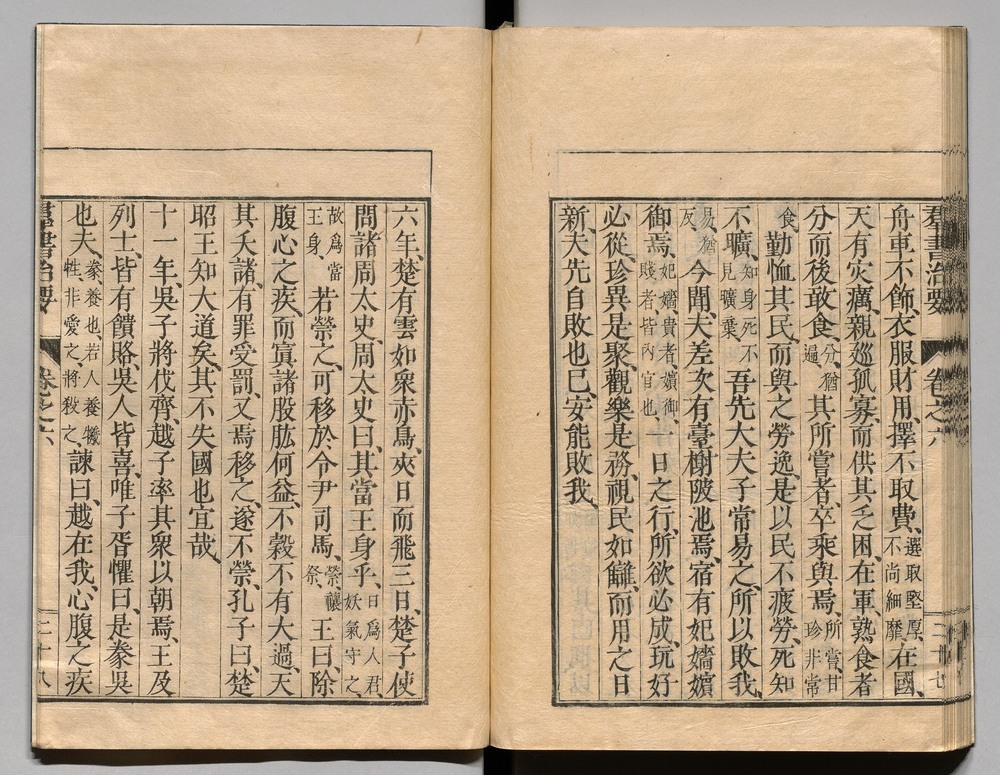 羣書治要 卷之六 二十七
舟車不飾、衣服財用、擇不取費、選取堅厚、不尚細靡、在國、
天有灾癘、親廵孤寡、而供其乏困、在軍、熟食者
分而後敢食、分、猶遍、其所嘗者、卒乘與焉、所嘗甘珍非常
食、勤恤其民、而與之勞逸、是以民不疲勞、死知
不曠、知身死不見曠棄、吾先大夫子常易之、所以敗我、
易、猶反、今聞夫差、次有臺榭陂池焉、宿有妃嬙嬪
御焉、妃嬙、貴者、嬪御、賤者、皆內官也、一日之行、所欲必成、玩好
必從、珍異是聚、觀樂是務、視民如讎、而用之日
新、夫先自敗也巳、安能敗我、
六年、楚有雲如衆赤鳥、夾日而飛三日、楚子使
問諸周太史、周太史曰、其當王身乎、日爲人君、妖氣守之、
故爲當王身、若禜之、可移於令尹司馬、禜、禳祭、王曰、除
腹心之疾、而寘諸股肱、何益、不穀不有大過、天
其夭諸、有罪受罰、又焉移之、遂不禜、孔子曰、楚
昭王知大道矣、其不失國也宜哉、
十一年、吳子將伐齊、越子率其衆以朝焉、王及
列士、皆有饋賂、吳人皆喜、唯子胥懼曰、是豢吳
也夫、豢、養也、若人養犧牲、非愛之、將殺之、諫曰、越在我、心腹之疾
羣書治要 卷之六 二十八